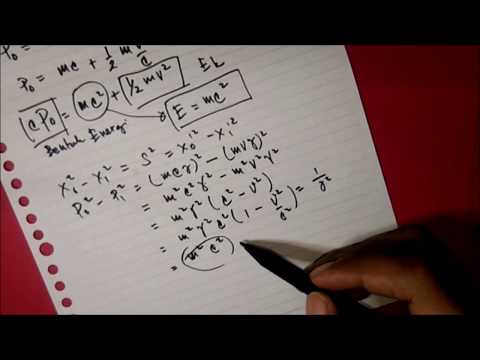 P₀ =
P₀ = mc + 1/2 m v²/c
cP₀ = mc² + 1/2 mv² Ek
Bentuk Energi E = mc²
x₀² - x₁² = S² = x₀'² - x₁'²
P₀² - P₁² = (mcγ)² - (mvγ)²
= m²c²γ² - m²v²γ²
= m²γ² (c² - v²)
= m²γ² c² (1 - v²/c²) = 1/γ²
= m²c²